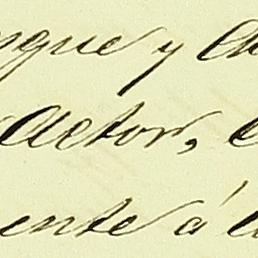 ngue y
Actor,
ente á